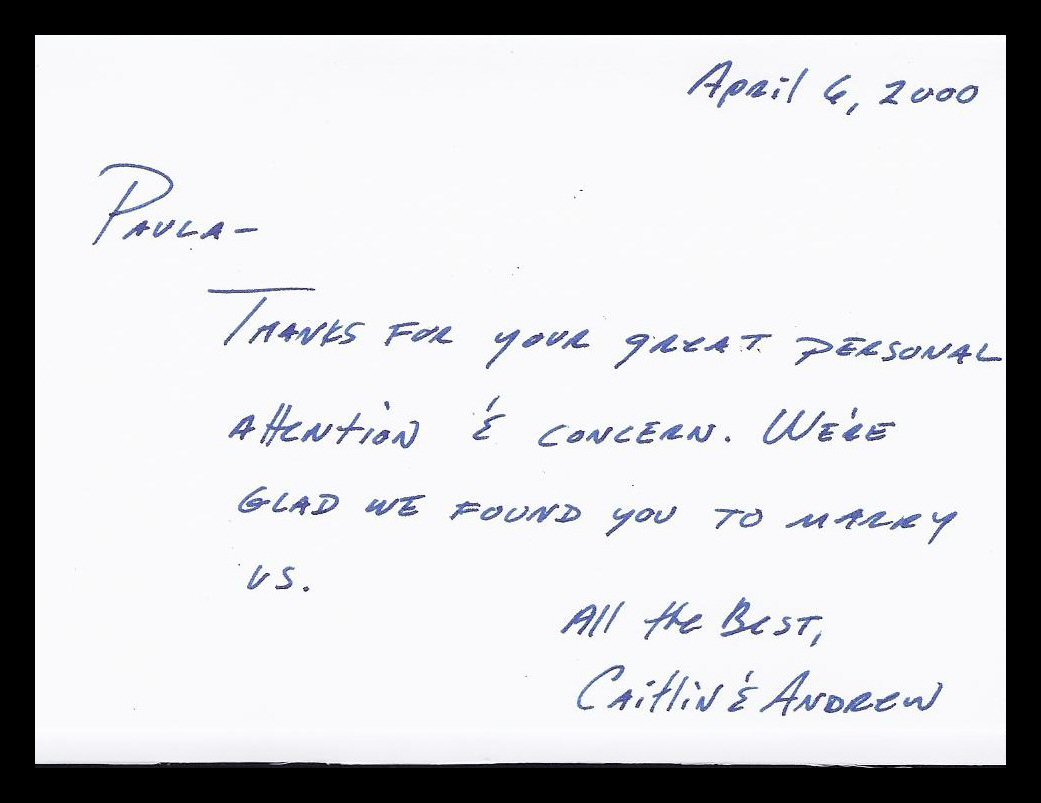 April 6, 2000
Paula-
Thanks for your great personal
attention & concern. We're
glad we found you to marry
us.
All the Best,
Caitlin & Andrew